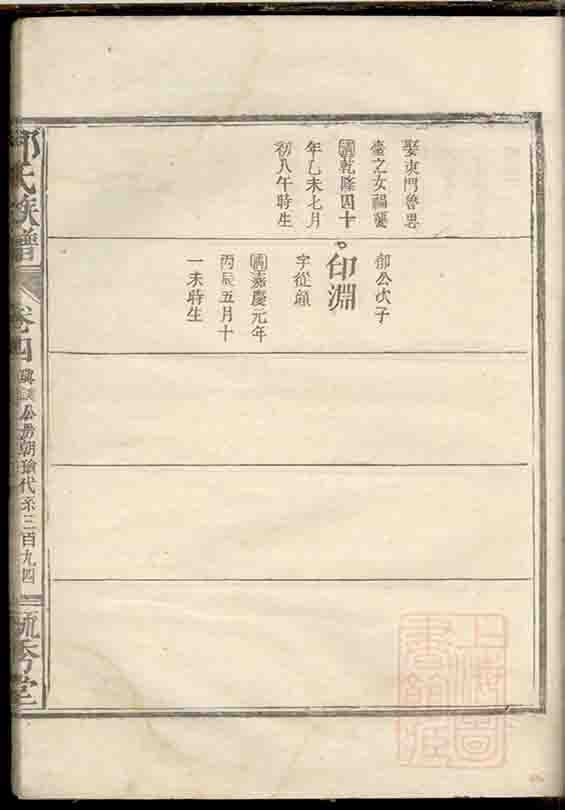 娶東門魯思
臺之女福薆
國乾隆四十
年乙未七月
初八午時生
邰公次子
印淵
字從顯
國嘉慶元年
丙辰五月十
一未時生
氏族譜
卷四
公房朝瑜代系三百九四
毓秀堂
上海圖書館藏